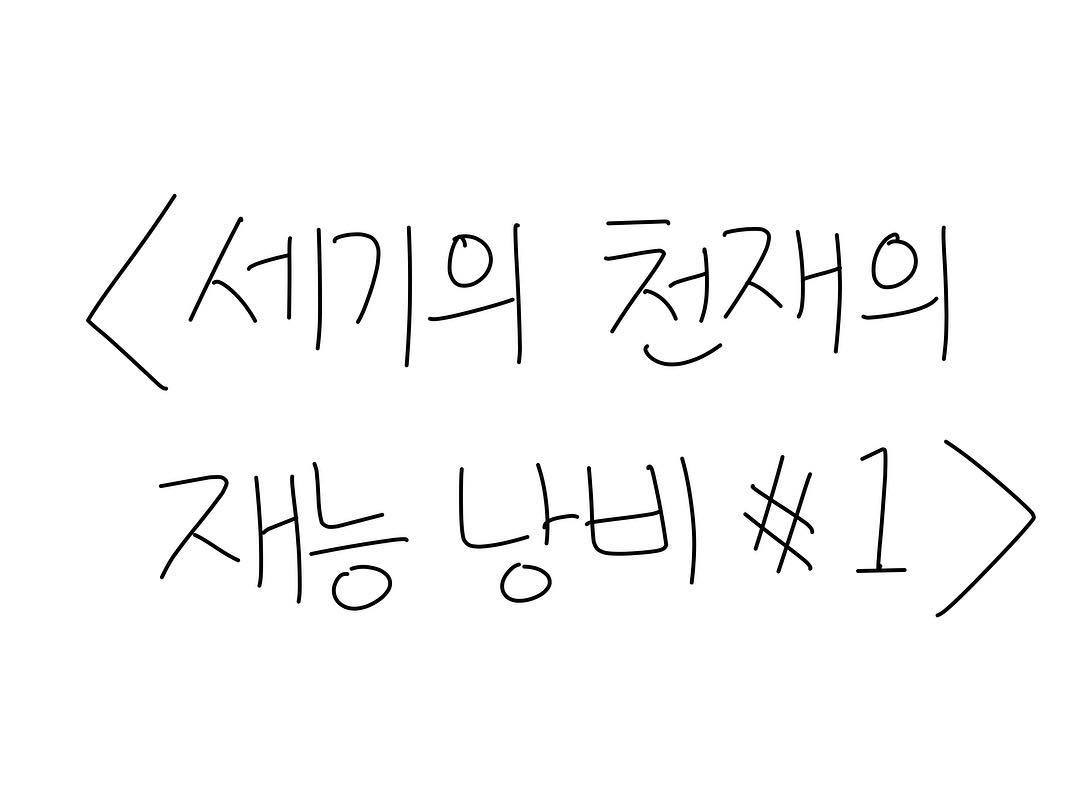 <세기의 천재의
재능 낭비 #1>